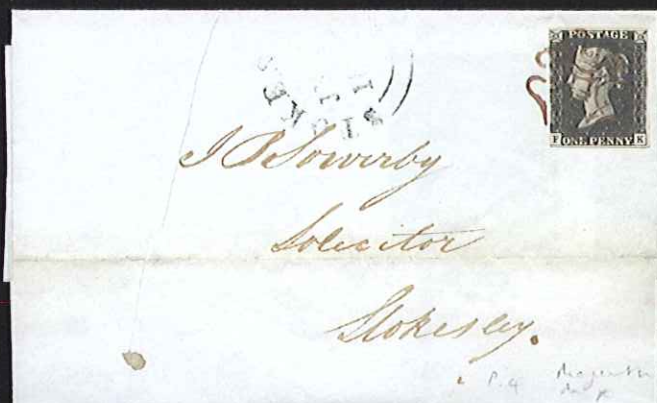 POSTAGE
ONE PENNY
F K
J P Sowerby
Solicitor
Stokesley.
P.4